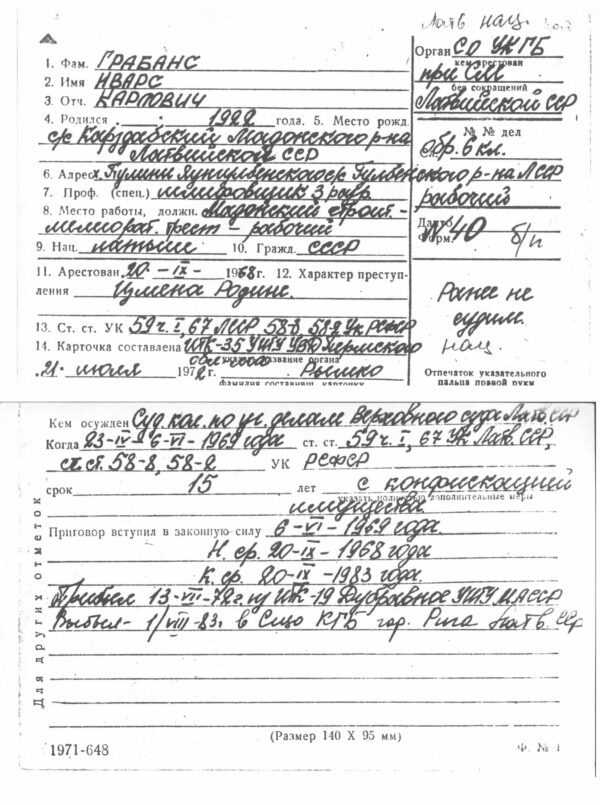 Латв нац.
1. Фам. ГРАБАНС
2. Имя ИВАРС
3. Отч. КАРЛОВИЧ
4. Родился 1922 года. 5. Место рожд.
с/с Карздабский Мадонского р-на
Латвийской ССР
6. Адрес х. Пулини с/с Гулбенского р-на ЛССР
7. Проф. (спец.) шлифовщик 3 разр.
8. Место работы, должн. Мадонский строит.-
мелиорат. трест - рабочий
9. Нац. латыш 10. Гражд. СССР
11. Арестован 20 - IX - 1968 г. 12. Характер преступ-
ления Измена Родине.
13. Ст. ст. УК 59 ч. I, 67 ЛССР 58-8, 58-2 УК РСФСР
14. Карточка составлена ИТК-35 УИТУ УВД Пермского
обл-гога
указать название органа
21. июля 1972 г. Рышко
фамилия составивш. карточку
Орган СО УКГБ
кем арестован
при СМ
без сокращений
Латвийской ССР
№ № дел
обр. 6 кл.
рабочий
Дакто
форм. Л 40 б/п
Ранее не
судим.
нац.
Отпечаток указательного
пальца правой руки
Кем осужден Суд. кол. по уг. делам Верховного суда Латв. ССР
Когда 23-IV - 6-VI-1969 года ст. ст. 59 ч. I, 67 УК Латв. ССР,
ст. ст. 58-8, 58-2 УК РСФСР
срок 15 лет с конфискацией
указать полностью дополнительные меры
имущества
Приговор вступил в законную силу 6-VI-1969 года.
Н. ср. 20-IX-1968 года
К. ср. 20-IX-1983 года.
Прибыл 13-VII-72г. из ИТК-19 Дубравное УИТУ МАССР
Выбыл - 1/VIII-83г. в Сизо КГБ гор. Рига Латв. ССР
Для других отметок
(Размер 140 X 95 мм)
1971-648
Ф. № 1